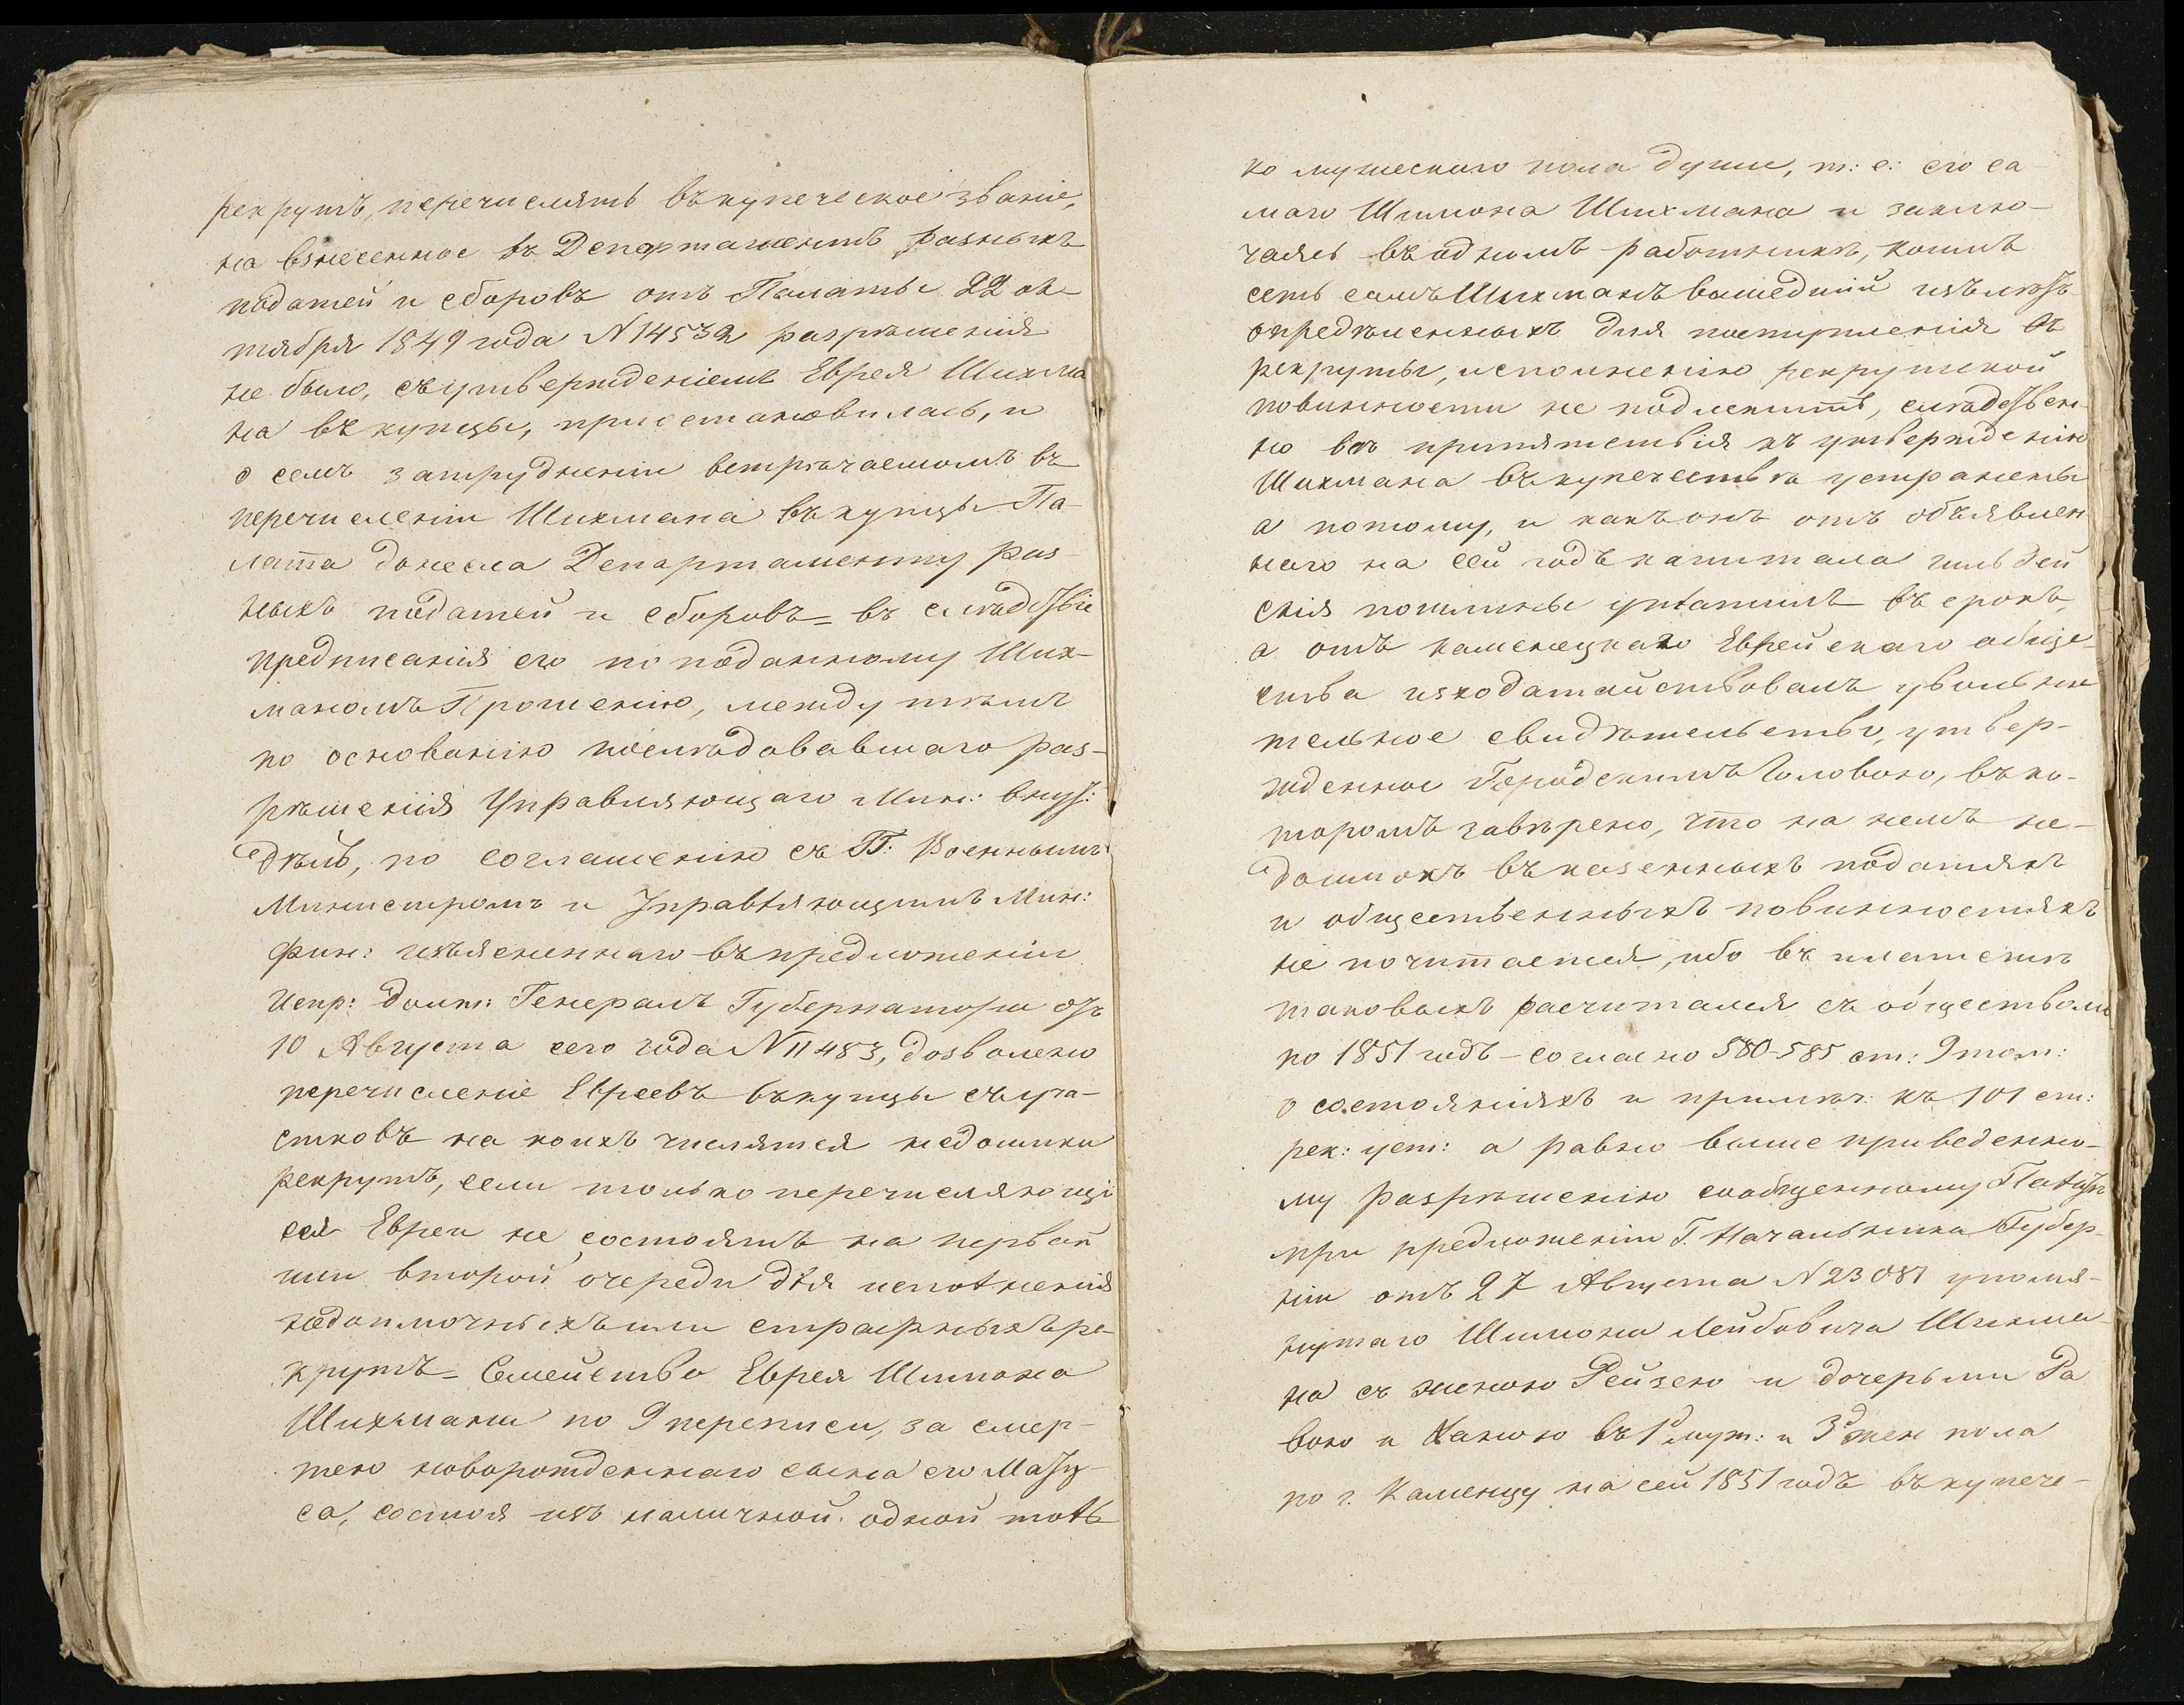 рекрутъ, перечислять въ купеческое званіе,
на внесенное въ Департаментъ разныхъ
податей и сборовъ отъ Палаты 22 ок-
тября 1849 года N 14532 разрѣшенія
не было, съ утвержденіемъ Еврея Шихма
на въ купцы, пристановилась, и
о семъ затрудненіи встрѣчаемомъ въ
перечисленіи Шихмана въ купцы Па-
лата донесла Департаменту раз-
ныхъ податей и сборовъ = въ слѣдствіе
предписанія его по поданному Ших-
маномъ Прошенію, между тѣмъ
по основанію послѣдовавшаго раз-
рѣшенія Управляющаго Мин: внут:
дѣлъ, по соглашенію съ Г: Военнымъ
Министромъ и Управляющимъ Мин:
Фин: изъясненнаго въ предложеніи
Испр: долж: Генералъ Губернатора отъ
10 Августа сего года N 11483, дозволено
перечисленіе Евреевъ въ купцы съ уча-
стковъ на коихъ числятся недоимки
рекрутъ, если только перечисляющіе
ся Евреи не состоятъ на первой
или второй очереди для исполненія
недоимочныхъ или страфныхъ ре-
крутъ = Семейство Еврея Шимона
Шихмана по 9 переписи, за смер-
тею новорожденнаго сына его Мату-
са, состоя изъ наличной одной толь
ко мужескаго пола души, т: е: его са
маго Шимона Шихмана и заклю-
чаясь въ одномъ работникѣ, коимъ
есть самъ Шихманъ вышедшій изъ лѣтъ
опредѣленныхъ для поступленія въ
рекруты, исполненію рекрутской
повинности не подлежитъ, слѣдствен-
но всѣ припятствія къ утвержденію
Шихмана въ купечествѣ устранены
а потому, и какъ онъ отъ объявлен
наго на сей годъ капитала гильдей
скія пошлины уплатилъ въ срокъ,
а отъ каменецкаго Еврейскаго обще-
ства исходатайствовалъ увольни
тельное свидѣтельство, утвер-
жденное Городскимъ Головою, въ ко-
торомъ завѣрено, что на немъ не-
доимокъ въ казенныхъ податяхъ
и общественныхъ повинностяхъ
не почитается, ибо въ платежѣ
таковыхъ расчитался съ обществомъ
по 1851 годъ - согласно 580-585 ст: 9 том:
о состояніяхъ и примѣч: къ 101 ст:
рек: уст: а равно выше приведенно-
му разрѣшенію сообщенному Палатѣ
при предложеніи Г. Начальника Губер-
ніи отъ 27 Августа N 23081 упомя-
нутаго Шимона Лейбовича Шихма-
на съ женою Рейзею и дочерьми Ра
вою и Ханою въ 1й муж: и 3й жен пола
по г. Каменцу на сей 1851 годъ въ купече-